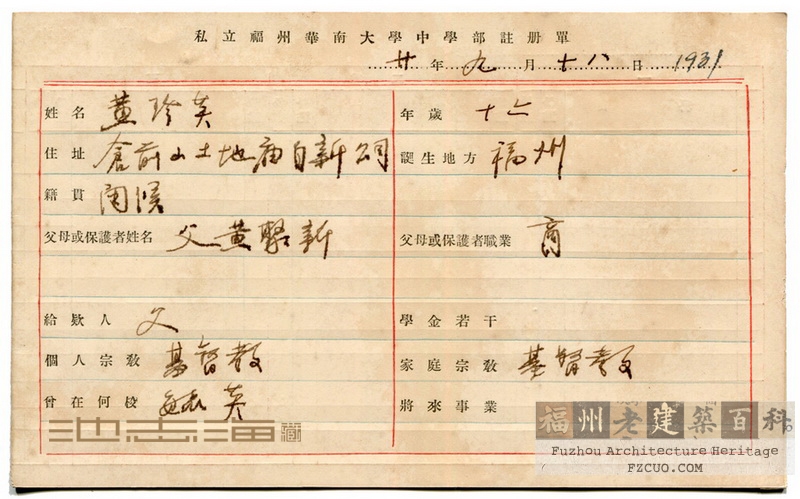 私立福州華南大學中學部註册單
廿年九月十八日 1931
姓名 黄珍英 年歲 十六
住址 倉前山土地庙自新公司 誕生地方 福州
籍貫 閩侯
父母或保護者姓名 父黄賢新 父母或保護者職業 商
給欵人 父 學金若干
個人宗敎 基督教 家庭宗敎 基督教
曾在何校 毓英 將來事業
池志海
福州老建築百科
Fuzhou Architecture Heritage
FZCUO.COM